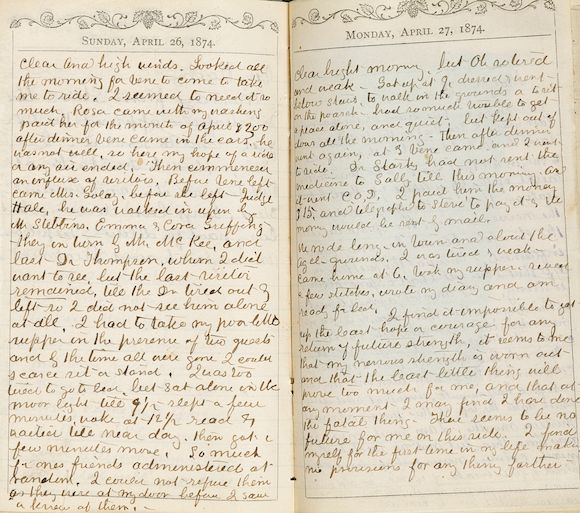 SUNDAY, APRIL 26, 1874.
Clear and high winds. Looked all
the morning for Vene to come to take
me to ride. I seemed to need it so
much. Rosa came with my washing
paid her for the month of April $2.00
after dinner Vene came in the cars, he
was not well, so here my hope of a ride
or any air ended. Then commenced
an influx of visitors. Before Vene left
came Mrs. before she left Judge
Hale, he was walked in upon by
Mr Stebbins, Emma & Cora
They in turn by Mr. McKee, and
last Dr Thompson, whom I did
want to see, but the last visitor
remained, till the Dr tired out &
left so I did not see him alone
at all. I had to take my poor little
supper in the presence of two guests
and by the time all were gone I could
scarce sit or stand. I was too
tired to go to bed, but sat alone in the
moon light till 9½ slept a few
minutes, woke at 12½ read &
waited till near day. Then got a
few minutes more. So much
for ones friends administered at
random. I could not refuse them
as they were at my door before I saw
a screw of them. —
MONDAY, APRIL 27, 1874.
Clear bright morning, but Oh so tired
and weak. Got up at 9, dressed & went
below stairs, to walk in the grounds & to sit
on the porch. had so much trouble to get
a place alone, and quiet, but kept out of
doors all the morning. Then after dinner
went again, at 3 Vene came and I went
to ride. Dr. Stark had not sent the
medicine to Sally till this morning, and
it went C.O.D. I paid him the money
$15, and telegraphed to Steve to pay it & the
money would be sent by mail.
We rode long, in town and about the
grounds. I was tired & weak
came home at 6, took my supper, sewed
a few stitches, wrote my diary and am
ready for bed.
I find it impossible to get
up the least hope or courage for any
return of future strength, it seems to me
that my nervous strength is worn out
and that the least little thing will
prove too much for me, and that at
any moment I may find I have done
the fatal thing. There seems to be no
future for me on this side. I find
myself for the first time in my life making
no provisions for any thing farther —